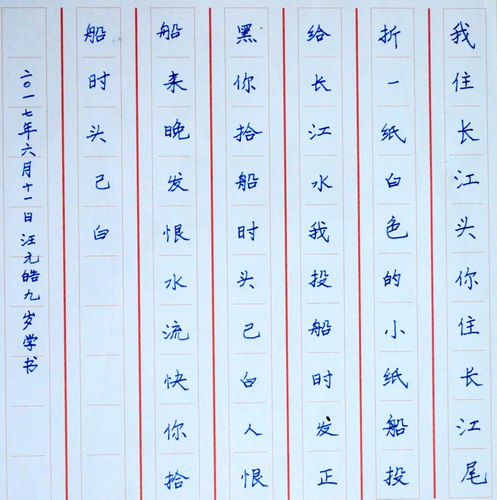 我住长江头你住长江尾
折一纸白色的小纸船投
给长江水我投船时发正
黑你拾船时头已白人恨
船来晚发恨水流快你拾
船时头已白
二〇一七年六月十一日汪元皓九岁学书